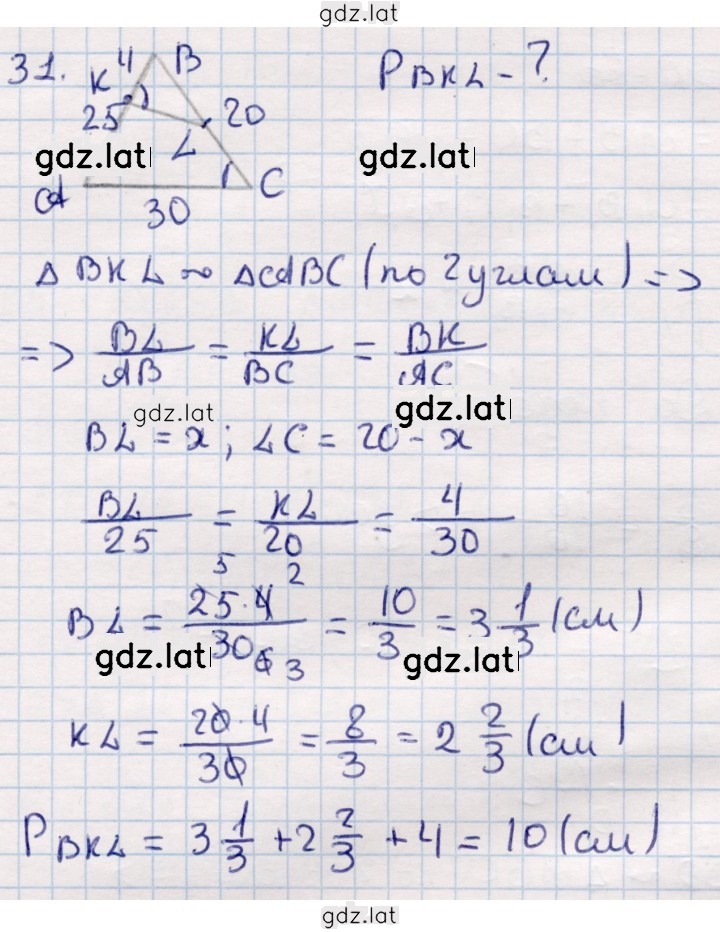 gdz.lat
31. K 4 B P BKL - ?
25 20
L
gdz.lat gdz.lat
A C
30
△ BKL ~ △ABC (по 2 углам) =>
=> BL/AB = KL/BC = BK/AC
gdz.lat gdz.lat
BL = x; LC = 20 - x
BL/25 = KL/20 = 4/30
BL = 25·4/30 = 10/3 = 3 1/3 (см)
5 2
6 3
gdz.lat gdz.lat
KL = 20·4/30 = 8/3 = 2 2/3 (см)
P BKL = 3 1/3 + 2 2/3 + 4 = 10 (см)
gdz.lat